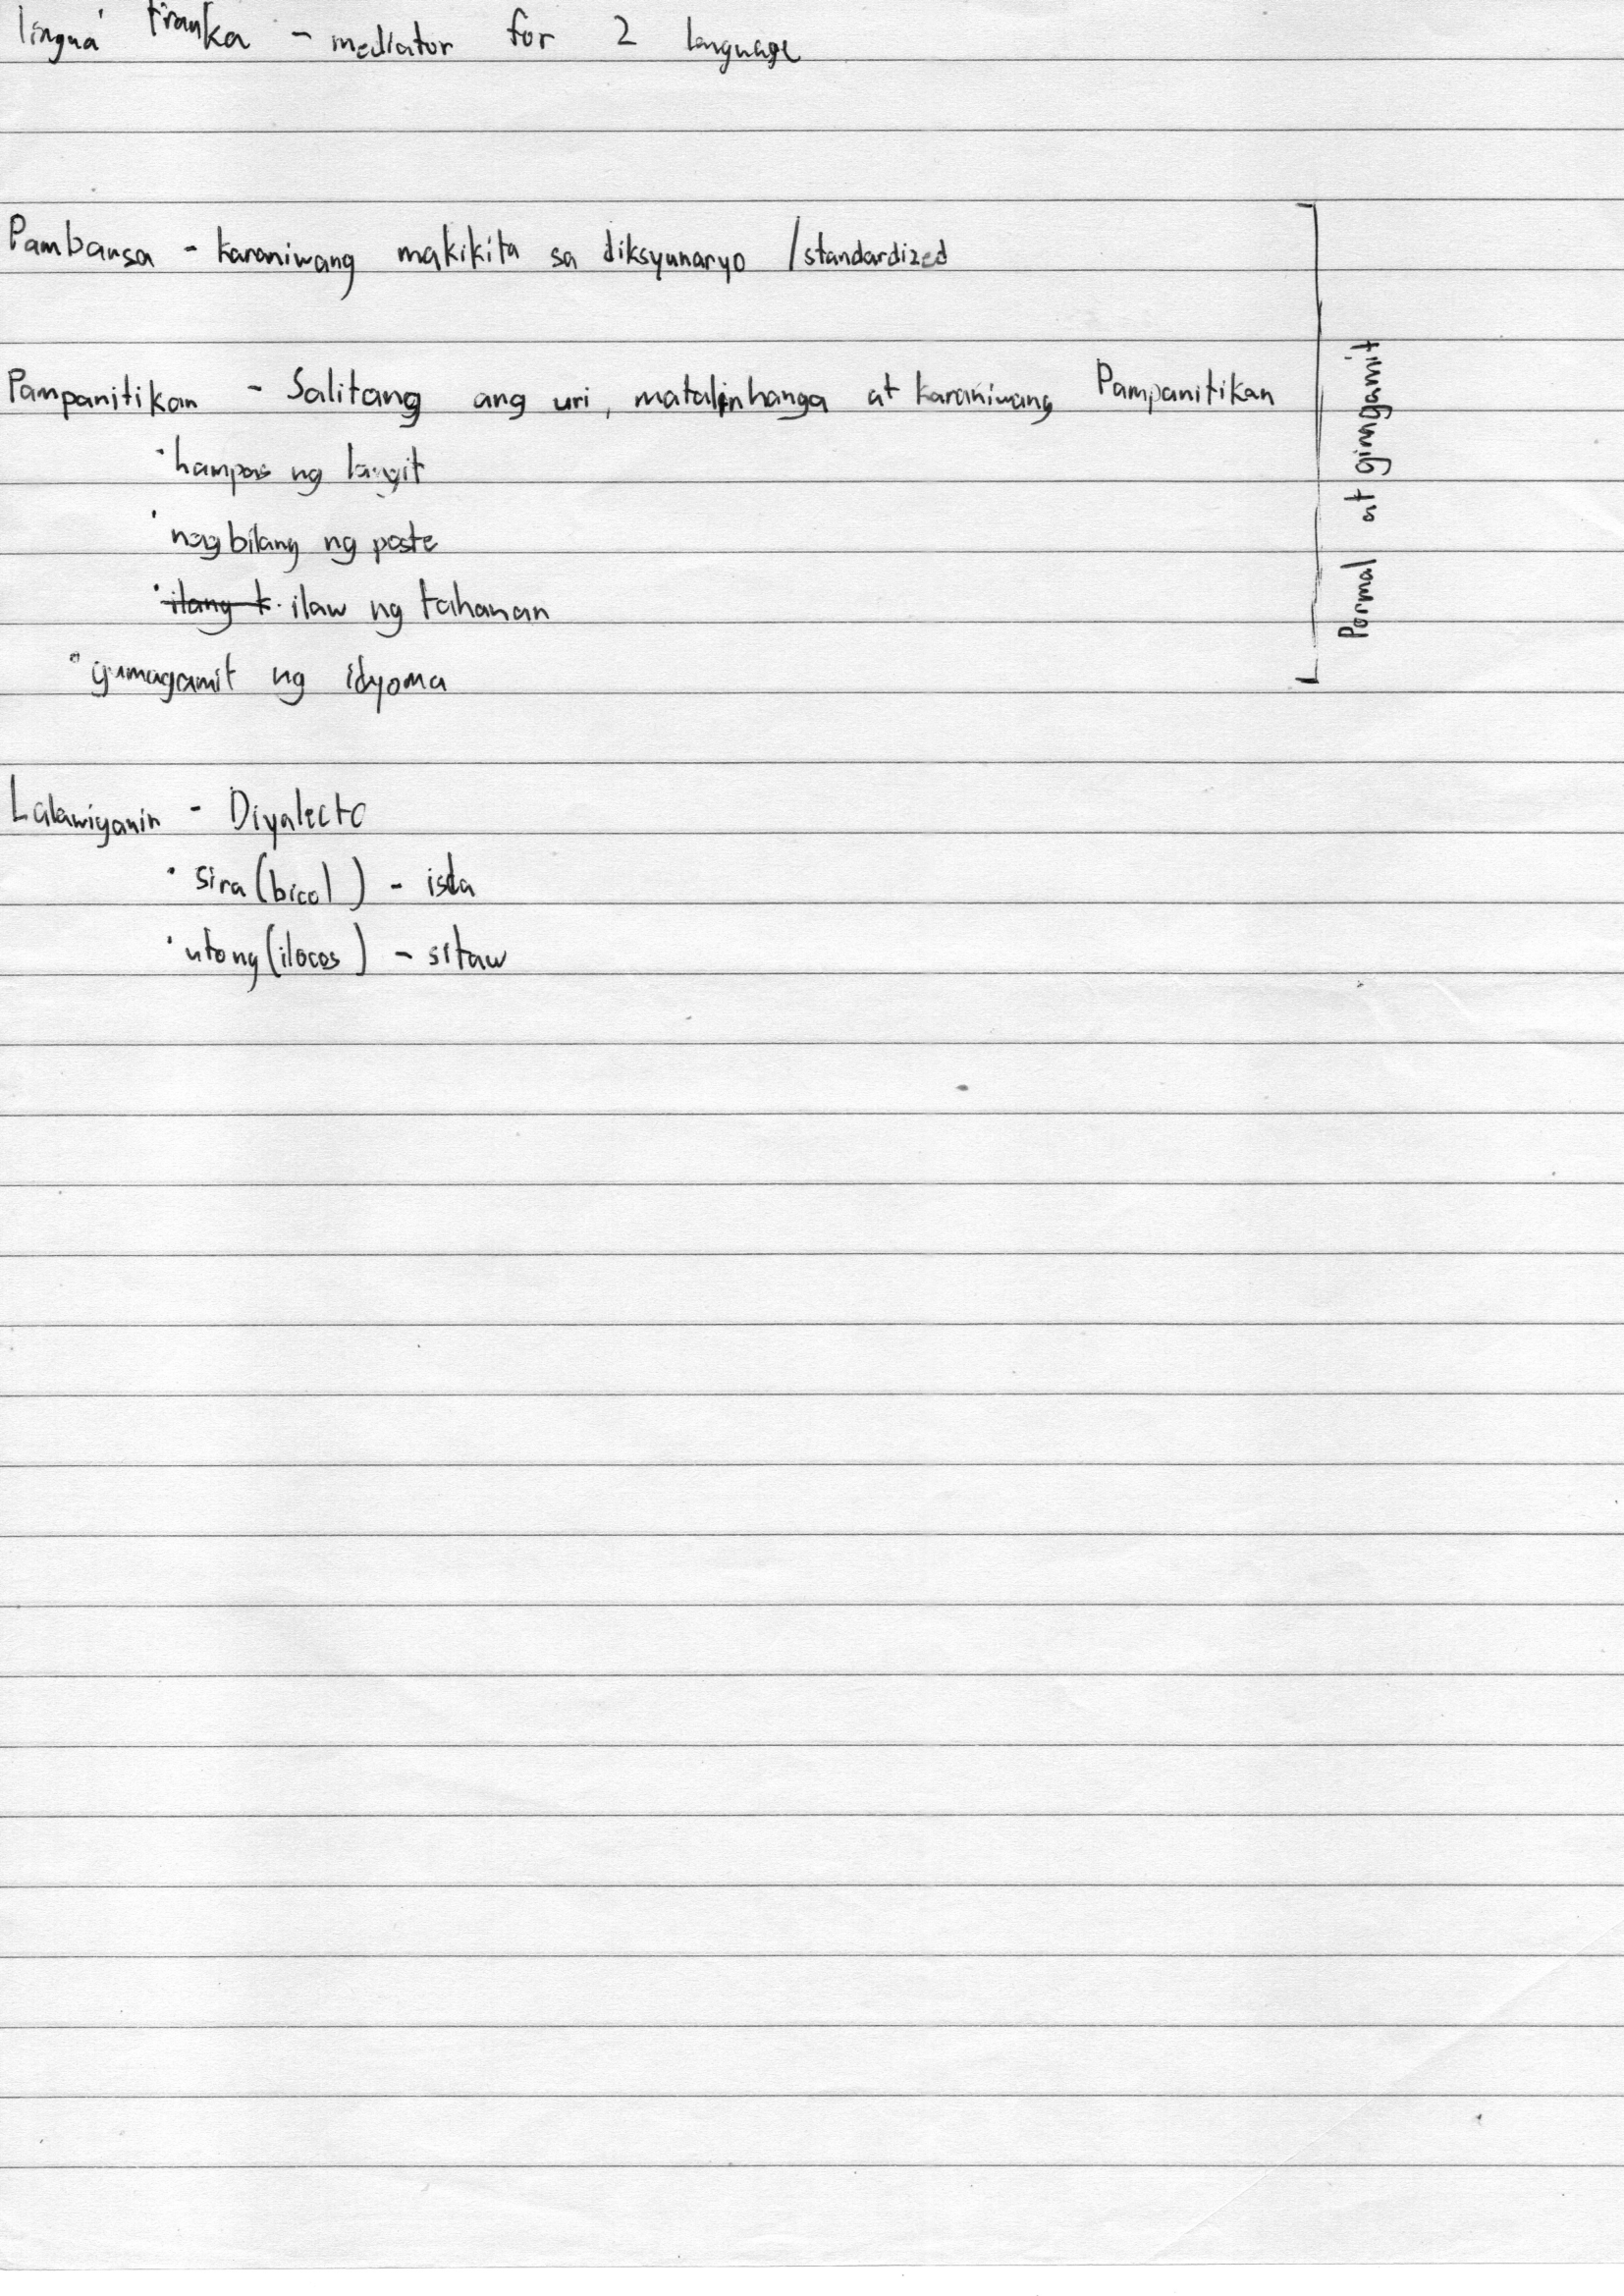 lingua franka - mediator for 2 language
Pambansa - karaniwang makikita sa diksyunaryo / standardized
Pampanitikan - Salitang ang uri, matalinhanga at karaniwang Pampanitikan
• hampas ng langit
• nagbilang ng poste
• ilang k. ilaw ng tahanan
• gumagamit ng idyoma
Pormal at ginagamit
Lalawiganin - Diyalecto
• sira (bicol) - isda
• utong (ilocos) - sitaw